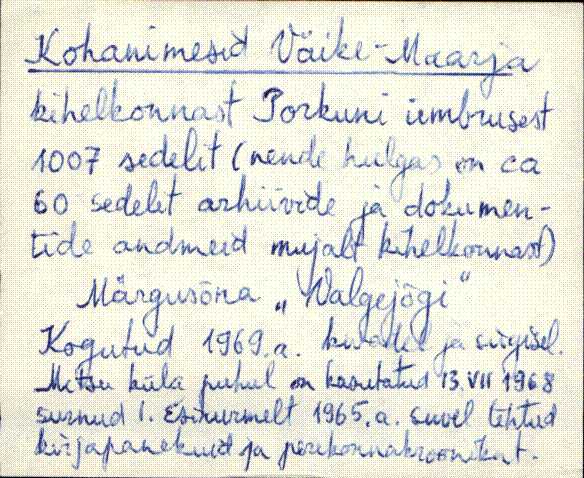 Kohanimesid Väike-Maarja
kihelkonnast Porkuni ümbrusest
1007 sedelit (nende hulgas on ca
60 sedelit arhiivide ja dokumen-
tide andmeid mujalt kihelkonnast)
Märgusõna „Valgejõgi"
Kogutud 1969.a. kevadel ja sügisel.
küla puhul on kasutatud 13.VII 1968
surnud I. Esinurmelt 1965.a. suvel tehtud
kirjapanekuid ja perekonnakroonikat.